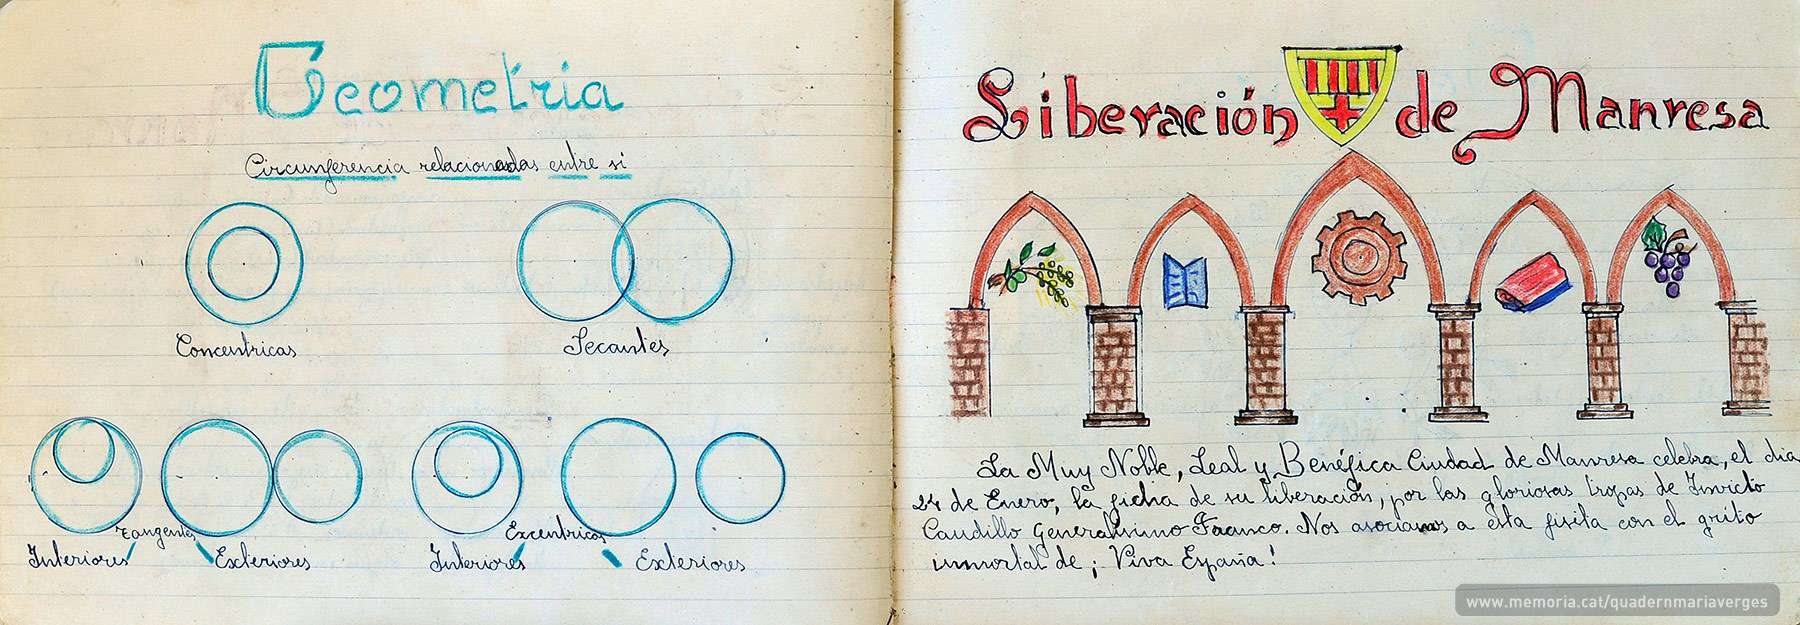 Geometria
Circunferencia relacionadas entre si
Concentricas
Secantes
Tangentes
Interiores
Exteriores
Excentricas
Interiores
Exteriores
Liberación de Manresa
La Muy Noble, Leal y Benéfica Ciudad de Manresa celebra, el dia
24 de Enero, la ficha de su liberación, por las gloriosas tropas de Invicto
Caudillo Generalisimo Franco. Nos asociamos a esta fisita con el grito
inmortal de ¡ Viva España!
www.memoria.cat/quadernmariaverges